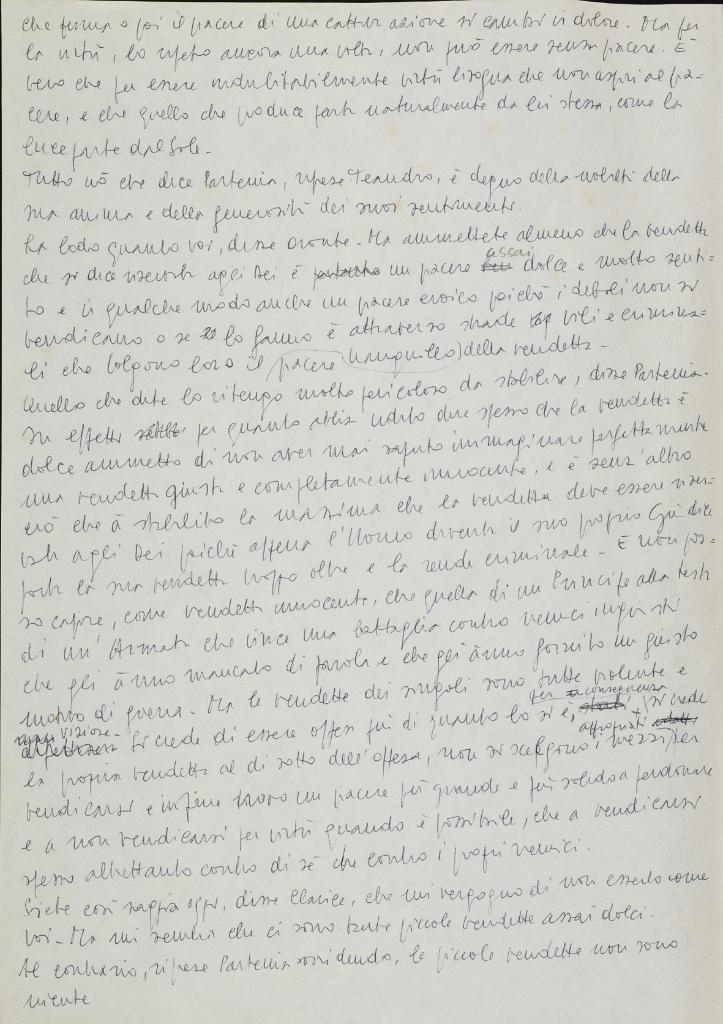 che forma o poi il piacere di una cattiva azione si cambi in dolore. Ma per
la virtù, lo ripeto ancora una volta, non può essere senza piacere. È
vero che per essere indubitabilmente virtù bisogna che non aspiri al pia-
cere, e che quello che produce parta naturalmente da lei stessa, come la
luce parte dal Sole.
Tutto ciò che dice Partenia, ripese Teandro, è degno della nobiltà della
sua anima e della generosità dei suoi sentimenti.
La lodo quanto voi, disse Oronte. Ma ammettete almeno che la vendetta
che si dice riservata agli Dei è un piacere assai dolce e molto senti-
to e in qualche modo anche un piacere eroico poiché i deboli non si
vendicano o se lo fanno è attraverso strade vili e crimina-
li che tolgono loro il piacere (tranquillo) della vendetta.
Quello che dite lo ritengo molto pericoloso da stabilire, disse Partenia.
In effetti per quanto abbia udito dire spesso che la vendetta è
dolce ammetto di non aver mai saputo immaginare perfettamente
una vendetta giusta e completamente innocente, e è senz'altro
ciò che à stabilito la massima che la vendetta deve essere riser-
vata agli Dei poiché appena l'Uomo diventa il suo proprio Giudice
porta la sua vendetta troppo oltre e la rende criminale. E non pos-
so capire, come vendetta innocente, che quella di un Principe alla testa
di un'Armata che vince una battaglia contro nemici ingiusti
che gli ànno mancato di parola e che gli ànno fornito un giusto
motivo di guerra. Ma le vendette dei singoli sono tutte violente e
viziose. Si crede di essere offesi più di quanto lo si è, per conseguenza si crede
la propria vendetta al di sotto dell'offesa, non si scelgono i mezzi appropriati per
vendicarsi e infine trovo un piacere più grande e più solido a perdonare
e a non vendicarsi per virtù quando è possibile, che a vendicarsi
spesso altrettanto contro di sé che contro i propri nemici.
Siete così saggia oggi, disse Clarice, che mi vergogno di non esserlo come
voi. Ma mi sembra che ci sono tante piccole vendette assai dolci.
Al contrario, ripese Partenia sorridendo, le piccole vendette non sono
niente